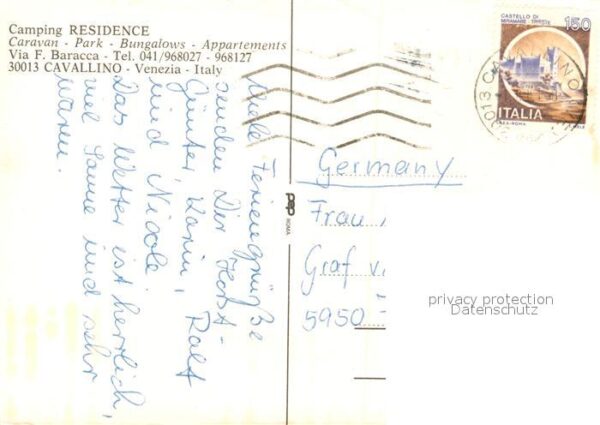 Camping RESIDENCE
Caravan - Park - Bungalows - Appartements
Via F. Baracca - Tel. 041/968027 - 968127
30013 CAVALLINO - Venezia - Italy
Viele Feriengrüße
senden Dir Horst-
Günter, Karin, Ralf
und Nicole.
Das Wetter ist herrlich,
viel Sonne und sehr
warm.
pap
ROMA
CASTELLO DI
MIRAMARE - TRIESTE
150
ITALIA
Germany
Frau
Graf v.
5950
privacy protection
Datenschutz